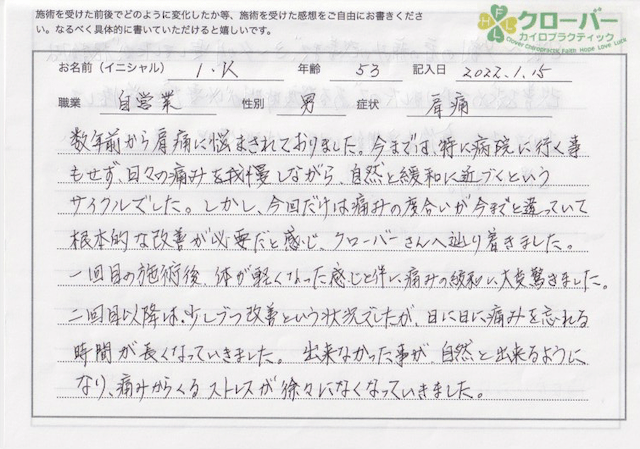 施術を受けた前後でどのように変化したか等、施術を受けた感想をご自由にお書きくださ
い。なるべく具体的に書いていただけると嬉しいです。
HFLL
クローバー
カイロプラクティック
Clover Chiropractic Faith Hope Love Luck
お名前（イニシャル） I.K 年齢 53 記入日 2022.1.15
職業 自営業 性別 男 症状 肩痛
数年前から肩痛に悩まされておりました。今までは、特に病院に行く事
もせず、日々の痛みを我慢しながら、自然と緩和に近づくという
サイクルでした。しかし、今回だけは痛みの度合いが今までと違っていて
根本的な改善が必要だと感じ、クローバーさんへ辿り着きました。
一回目の施術後、体が軽くなった感じと伴い痛みの緩和に大変驚きました。
二回目以降は、少しづつ改善という状況でしたが、日に日に痛みを忘れる
時間が長くなっていきました。 出来なかった事が、自然と出来るように
なり、痛みからくるストレスが徐々になくなっていきました。